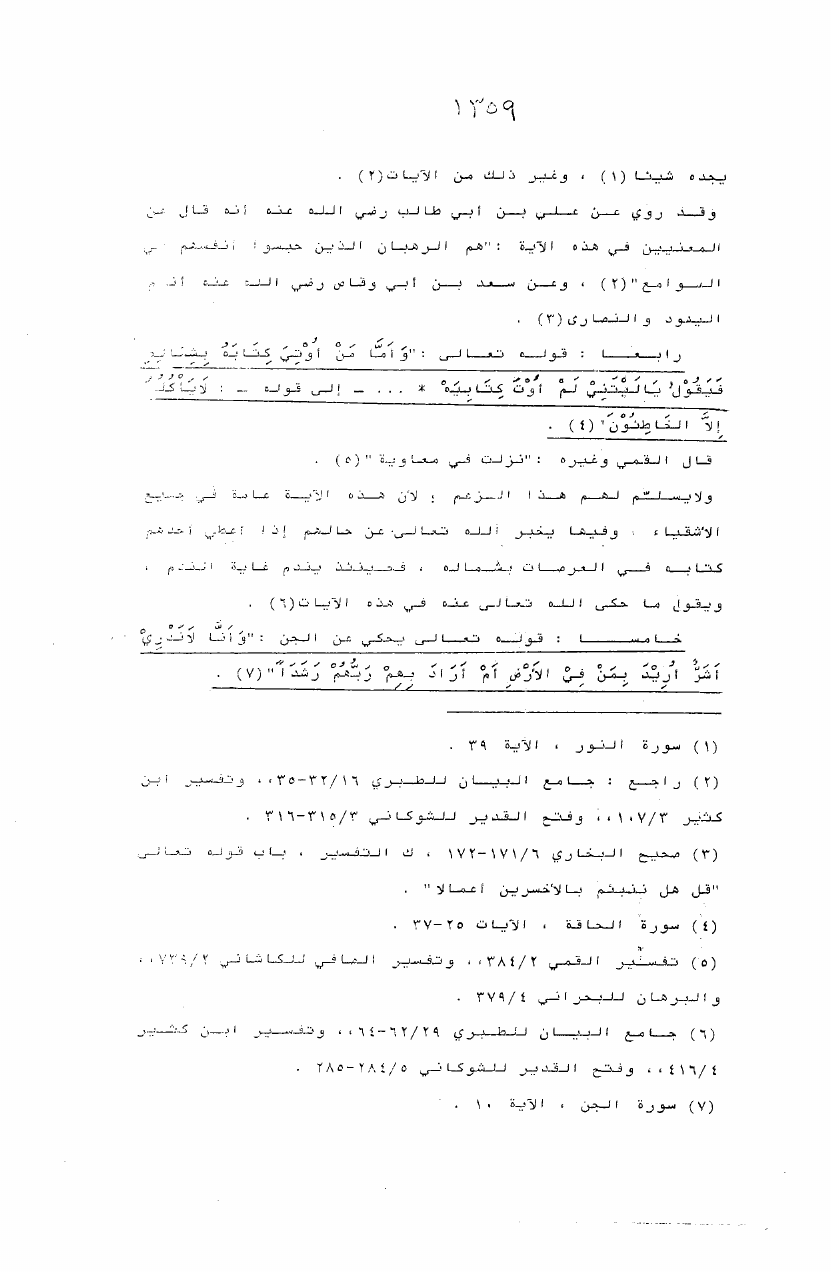 ١٣٥٩
يجده شيئا (١) ، وغير ذلك من الآيات(٢) .
وقد روي عن علي بن أبي طالب رضي الله عنه أنه قال عن
المعنيين في هذه الآية : "هم الرهبان الذين حبسوا أنفسهم في
السوامع"(٢) ، وعن سعد بن أبي وقاص رضي الله عنه أنهم
اليهود والنصارى(٣) .
رابعا : قوله تعالى : "وَأَمَّا مَنْ أُوْتِيَ كِتَابَهُ بِشِمَالِهِ
فَيَقُوْلُ يَالَيْتَنِيْ لَمْ أُوْتَ كِتَابِيَهْ * ... - إلى قوله - : لَايَأْكُلُهُ
إِلاَّ الْخَاطِئُوْنَ"(٤) .
قال القمي وغيره : "نزلت في معاوية "(٥) .
ولايسلّم لهم هذا الزعم ؛ لأن هذه الآية عامة في جميع
الأشقياء ، وفيها يخبر الله تعالى عن حالهم إذا أعطي أحدهم
كتابه في العرصات بشماله ، فحينئذ يندم غاية الندم ،
ويقول ما حكى الله تعالى عنه في هذه الآيات(٦) .
خامسا : قوله تعالى يحكي عن الجن : "وَأَنَّا لَانَدْرِيْ
أَشَرٌّ أُرِيْدَ بِمَنْ فِيْ الأَرْضِ أَمْ أَرَادَ بِهِمْ رَبُّهُمْ رَشَداً"(٧) .
(١) سورة النور ، الآية ٣٩ .
(٢) راجع : جامع البيان للطبري ١٦/٣٢-٣٥،، وتفسير ابن
كثير ١٠٧/٣،، وفتح القدير للشوكاني ٣/٣١٥-٣١٦ .
(٣) صحيح البخاري ٦/١٧١-١٧٢ ، ك التفسير ، باب قوله تعالى
"قل هل ننبئكم بالأخسرين أعمالا" .
(٤) سورة الحاقة ، الآيات ٢٥-٣٧ .
(٥) تفسير القمي ٣٨٤/٢،، وتفسير الصافي للكاشاني ٧٣٩/٢،،
والبرهان للبحراني ٣٧٩/٤ .
(٦) جامع البيان للطبري ٢٩/٦٢-٦٤،، وتفسير ابن كثير
٤١٦/٤،، وفتح القدير للشوكاني ٥/٢٨٤-٢٨٥ .
(٧) سورة الجن ، الآية ١٠ .